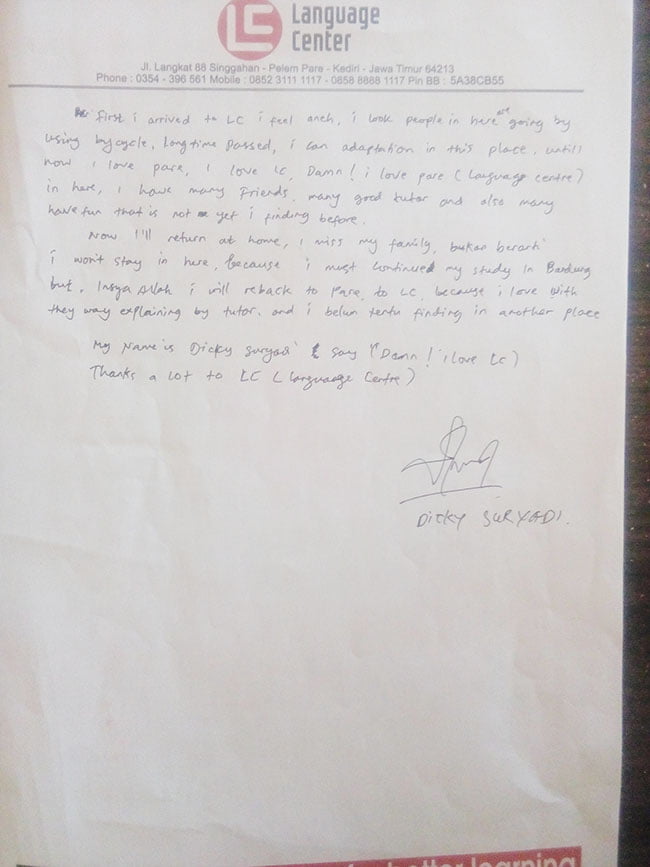 LC
Language
Center
Jl. Langkat 88 Singgahan - Pelem Pare - Kediri - Jawa Timur 64213
Phone : 0354 - 396 561 Mobile : 0852 3111 1117 - 0858 8888 1117 Pin BB : 5A38CB55
first i arrived to LC i feel aneh, i look people in here are going by
using bycycle, long time passed, i can adaptation in this place, untill
now i love pare, i love LC, Damn! i love pare (language centre)
in here, i have many friends, many good tutor and also many
have fun that is not yet i finding before.
Now I'll return at home, i miss my family, bukan berarti
i won't stay in here, because i must continued my study in Bandung
but, Insya Allah i will reback to Pare, to LC, because i love with
they way explaining by tutor. and i belum tentu finding in another place
My Name is Dicky Suryadi say "Damn! i love LC)
Thanks a lot to LC (Language Centre)
DICKY SURYADI.
better learning